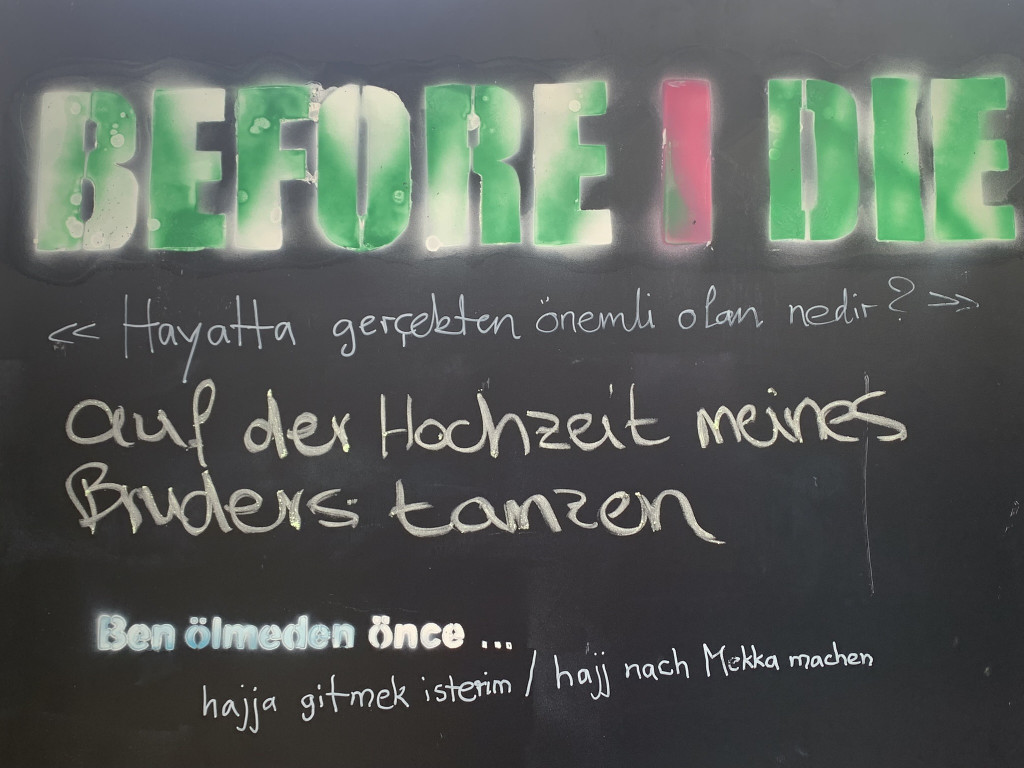 BEFORE I DIE
<< Hayatta gerçekten önemli olan nedir? >>
auf der Hochzeit meines
Bruders tanzen
Ben ölmeden önce ...
hajja gitmek isterim / hajj nach Mekka machen